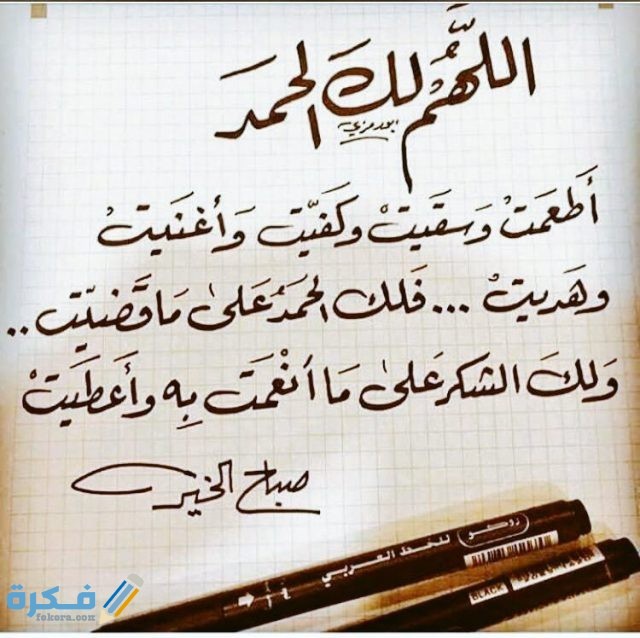 اللَّهُم لك الحمد
أَطعَمتْ وَسقَيتْ وكَفيّت وَأغنَيتْ
وهَديتْ ... فَلك الحمَدُ عَلىٰ مَا قَضيّت ..
وَلكَ الشكر عَلىٰ مَا أنْعَمَت بِه وأَعطَيَتْ
صباح الخير
زوكو للخط العربي
BLACK
فكرة
fekera.com